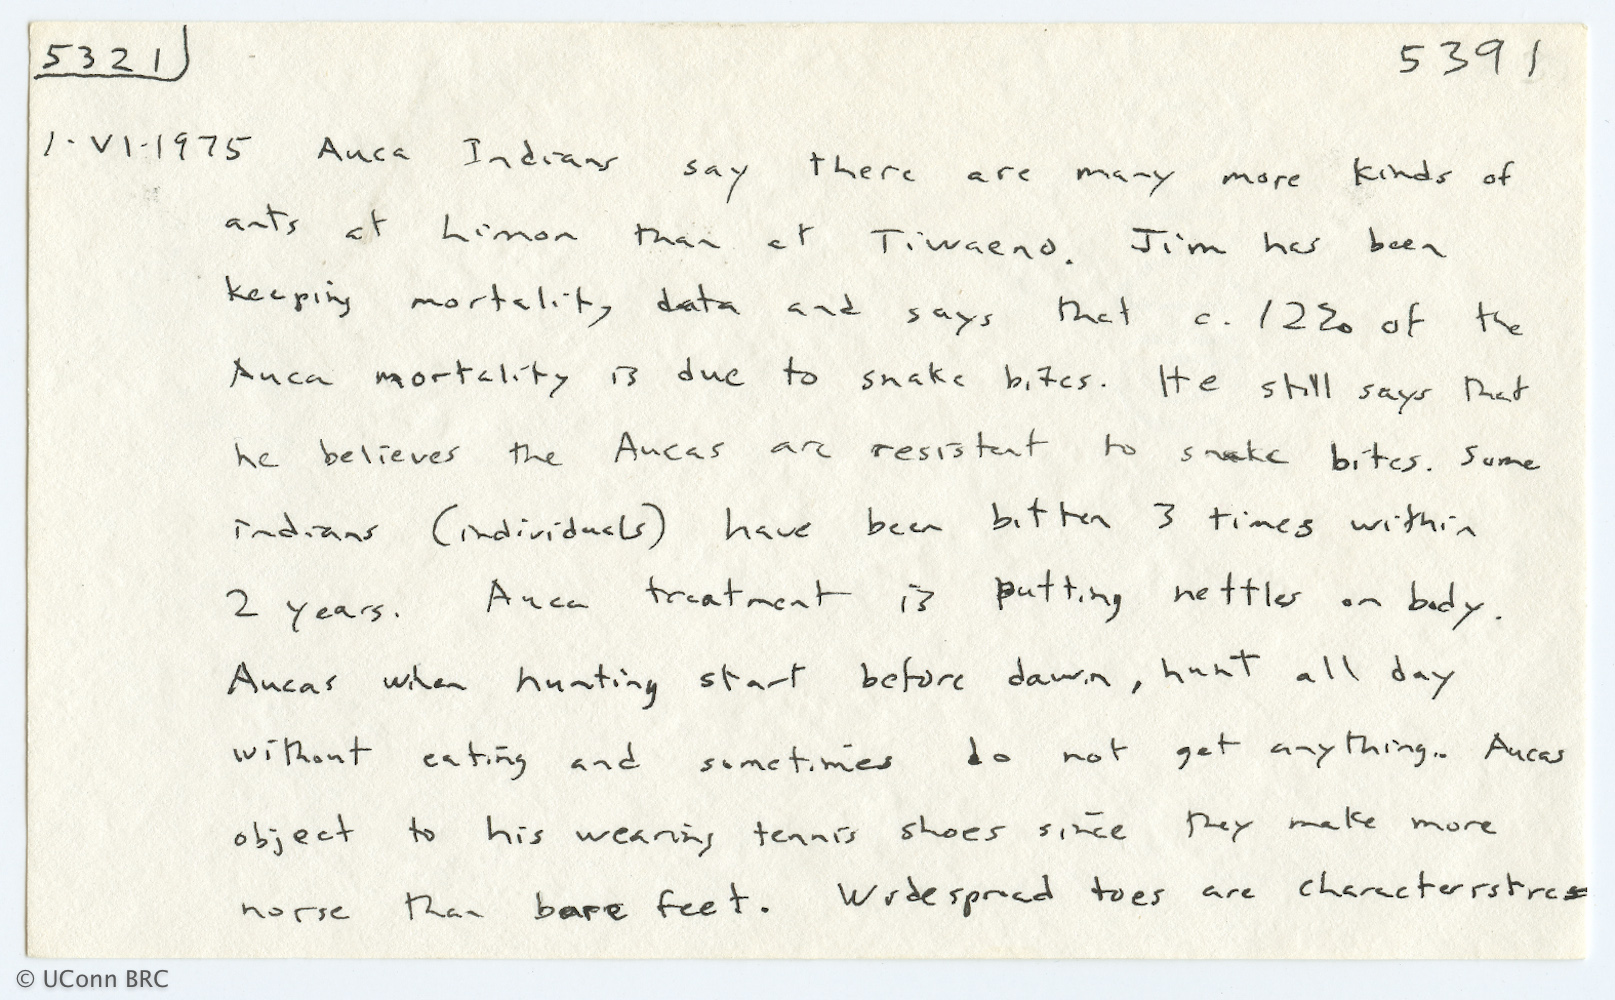 5321
5391
1·VI·1975 Auca Indians say there are many more kinds of
ants at Limon than at Tiwaeno. Jim has been
keeping mortality data and says that c. 12% of the
Auca mortality is due to snake bites. He still says that
he believes the Aucas are resistent to snake bites. Some
indians (individuals) have been bitten 3 times within
2 years. Auca treatment is putting nettles on body.
Aucas when hunting start before dawn, hunt all day
without eating and sometimes do not get anything. Aucas
object to his wearing tennis shoes since they make more
norse than bare feet. Widespread toes are characterrstres
© UConn BRC